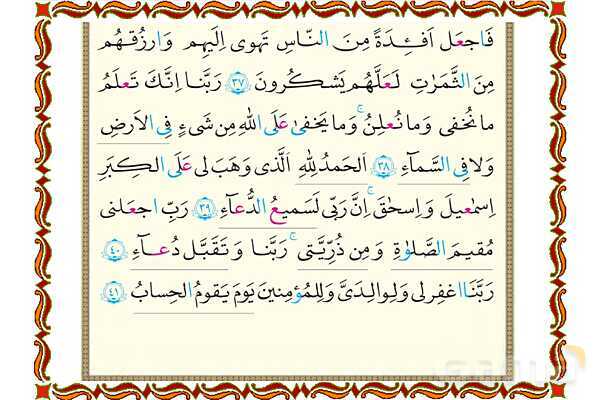 فَاجعَل اَفـِٔدَةً مِنَ النّاسِ تَهوی اِلَیهِم وَارزُقهُم
مِنَ الثَّمَرٰتِ لَعَلَّهُم یَشکُرونَ ﴿٣٧﴾ رَبَّنا اِنَّکَ تَعلَمُ
ما نُخفی وَما نُعلِنُ ۗ وَما یَخفیٰ عَلَی اللهِ مِن شَیءٍ فِی الاَرضِ
وَلا فِی السَّمآءِ ﴿٣٨﴾ اَلحَمدُ لِلّٰهِ الَّذی وَهَبَ لی عَلَی الکِبَرِ
اِسمٰعیلَ وَاِسحٰقَ ۚ اِنَّ رَبّی لَسَمیعُ الدُّعآءِ ﴿٣٩﴾ رَبِّ اجعَلنی
مُقیمَ الصَّلوٰةِ وَمِن ذُرِّیَّتی ۚ رَبَّنا وَتَقَبَّل دُعـآءِ ﴿٤٠﴾
رَبَّنَا اغفِر لی وَلِوالِدَیَّ وَلِلمُؤمِنینَ یَومَ یَقومُ الحِسابُ ﴿٤١﴾